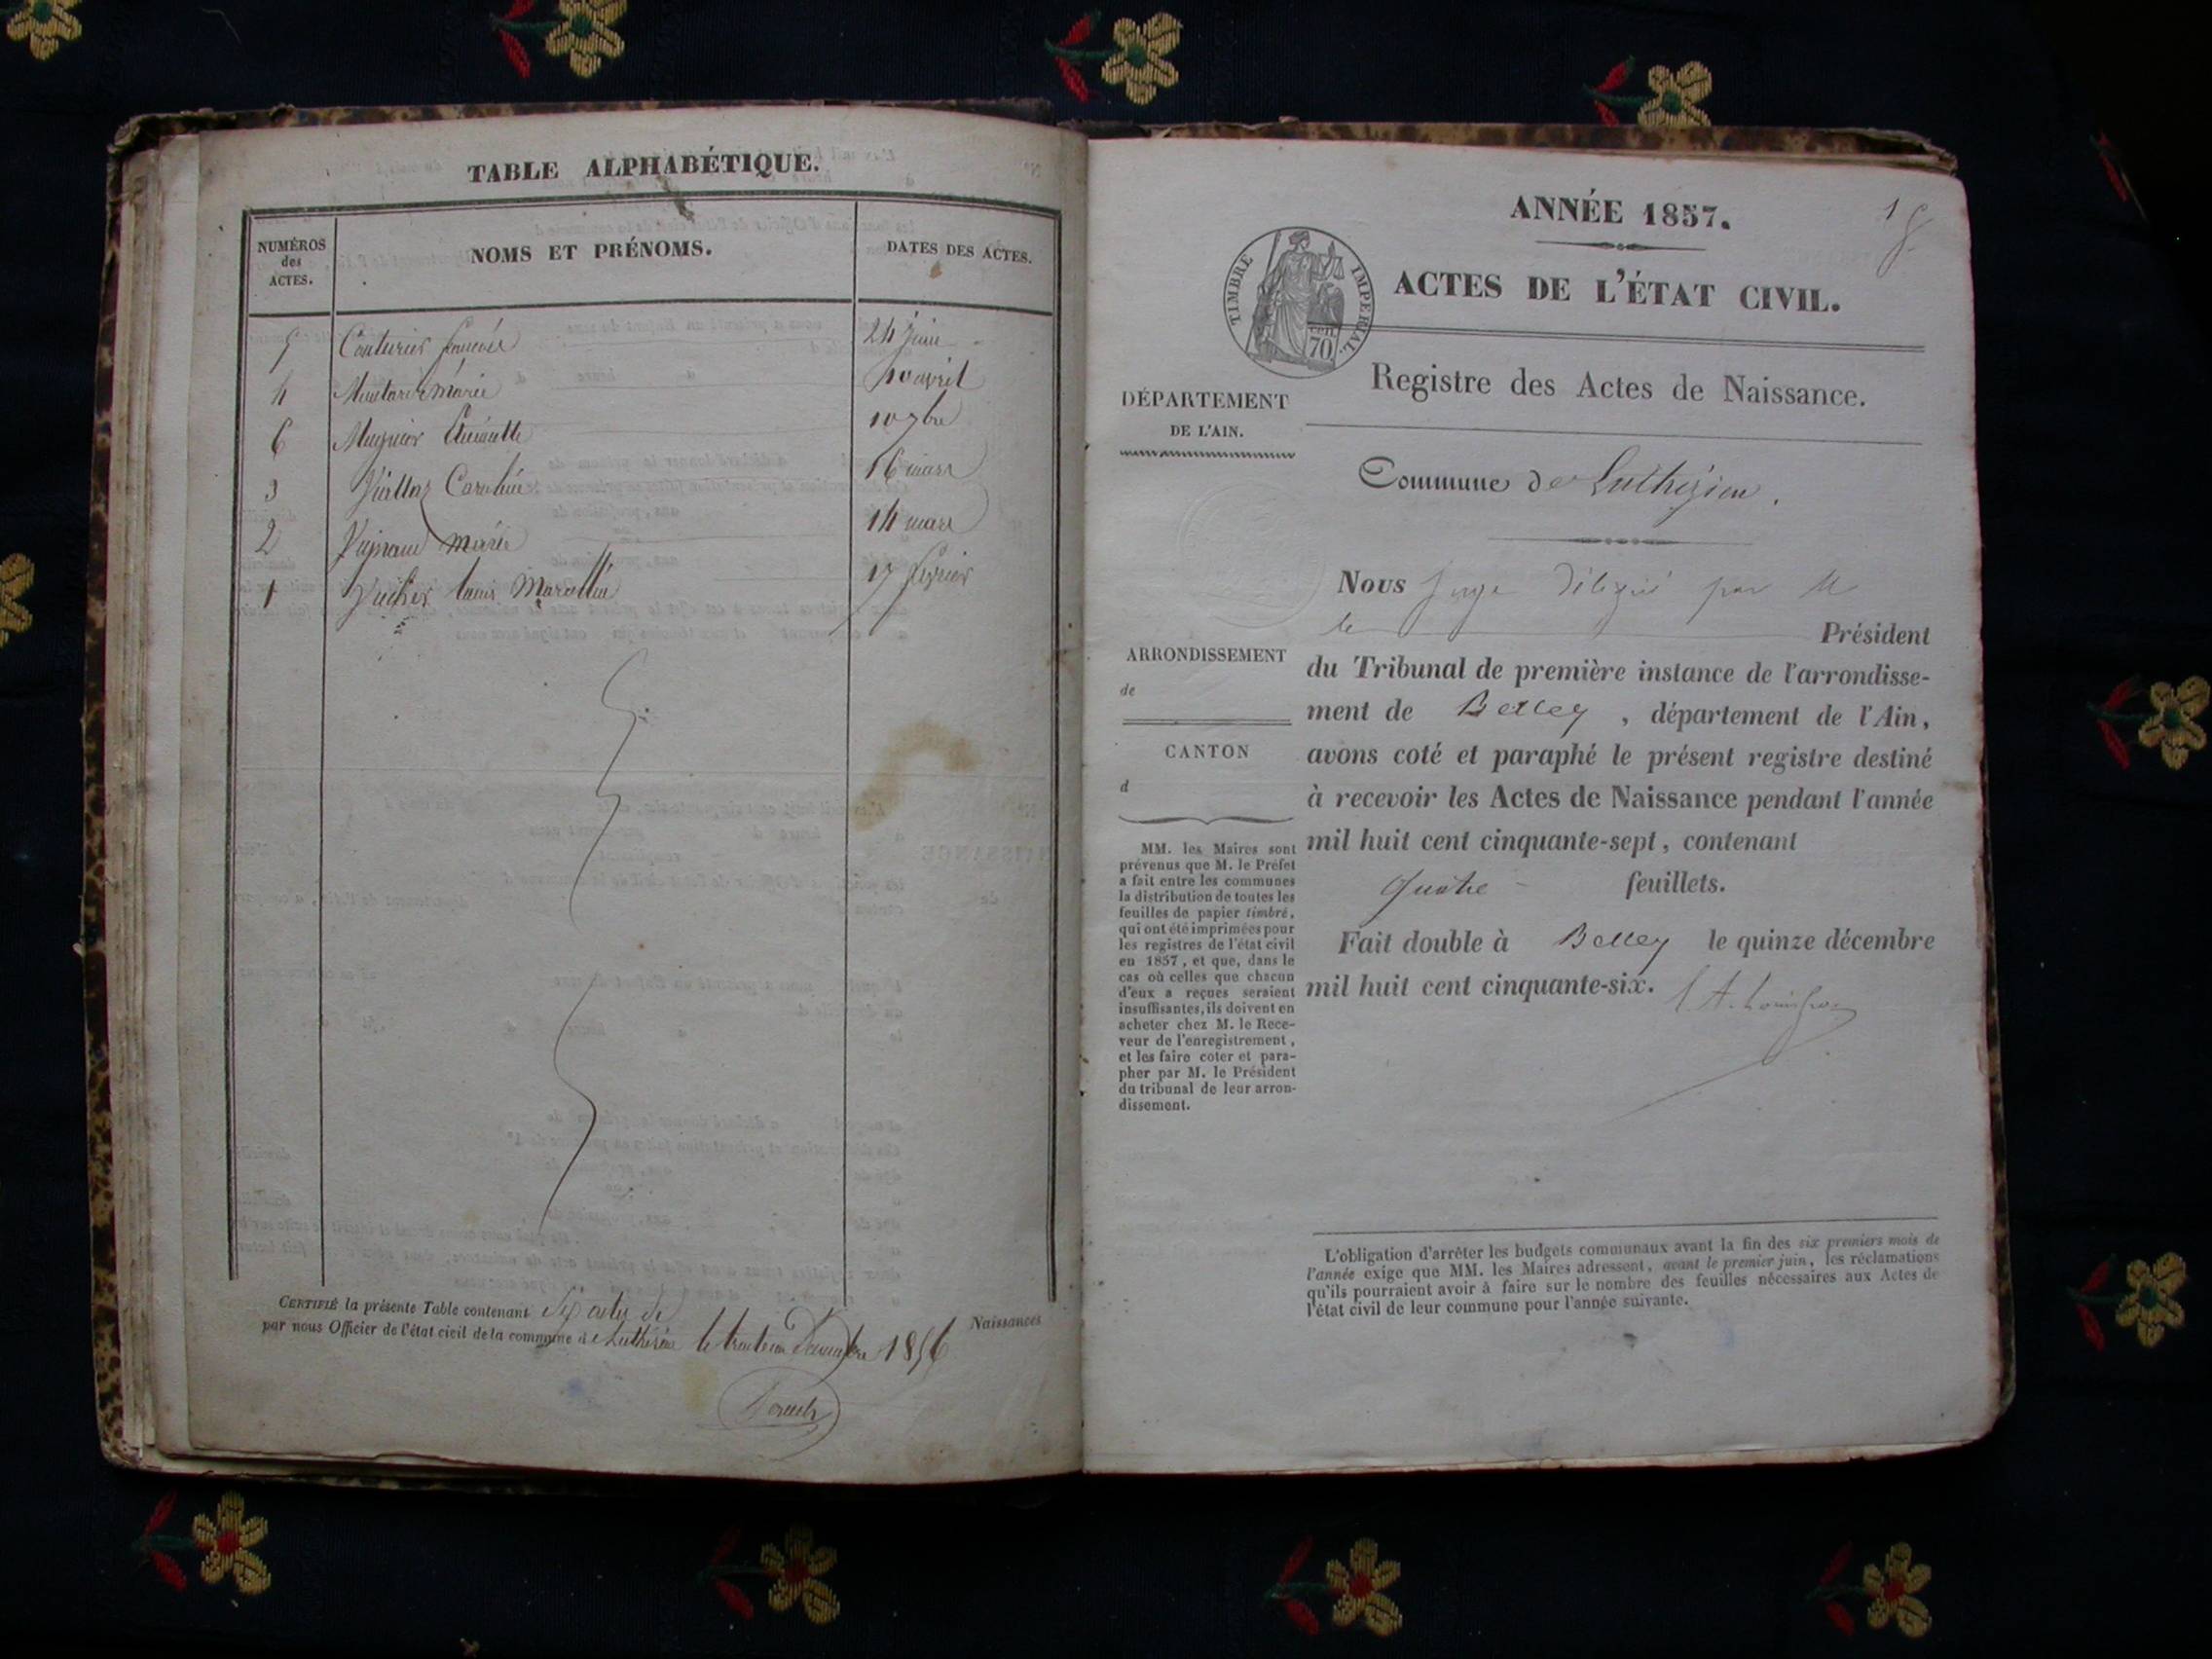 TABLE ALPHABÉTIQUE.
NUMÉROS
des
ACTES.
NOMS ET PRÉNOMS.
DATES DES ACTES.
5 Couturier 24 juin
4 Marie 10 avril
6 10 7bre
3 Viallaz Caroline 16 mars
2 Marie 14 mars
1 Louis Marcellin 17 février
CERTIFIÉ la présente Table contenant Six actes de Naissances
par nous Officier de l'état civil de la commune de Luthézieu le trente un Décembre 1856
1
ANNÉE 1857.
TIMBRE IMPÉRIAL.
cen.
70
ACTES DE L'ÉTAT CIVIL.
Registre des Actes de Naissance.
DÉPARTEMENT
DE L'AIN.
Commune de Luthézieu.
Nous Juge délégué par M
le Président
ARRONDISSEMENT
de
CANTON
d
du Tribunal de première instance de l'arrondisse-
ment de Belley, département de l'Ain,
avons coté et paraphé le présent registre destiné
à recevoir les Actes de Naissance pendant l'année
mil huit cent cinquante-sept, contenant
quatre feuillets.
Fait double à Belley le quinze décembre
mil huit cent cinquante-six.
MM. les Maires sont
prévenus que M. le Préfet
a fait entre les communes
la distribution de toutes les
feuilles de papier timbré,
qui ont été imprimées pour
les registres de l'état civil
en 1857, et que, dans le
cas où celles que chacun
d'eux a reçues seraient
insuffisantes, ils doivent en
acheter chez M. le Rece-
veur de l'enregistrement,
et les faire coter et para-
pher par M. le Président
du tribunal de leur arron-
dissement.
L'obligation d'arrêter les budgets communaux avant la fin des six premiers mois de
l'année exige que MM. les Maires adressent, avant le premier juin, les réclamations
qu'ils pourraient avoir à faire sur le nombre des feuilles nécessaires aux Actes de
l'état civil de leur commune pour l'année suivante.